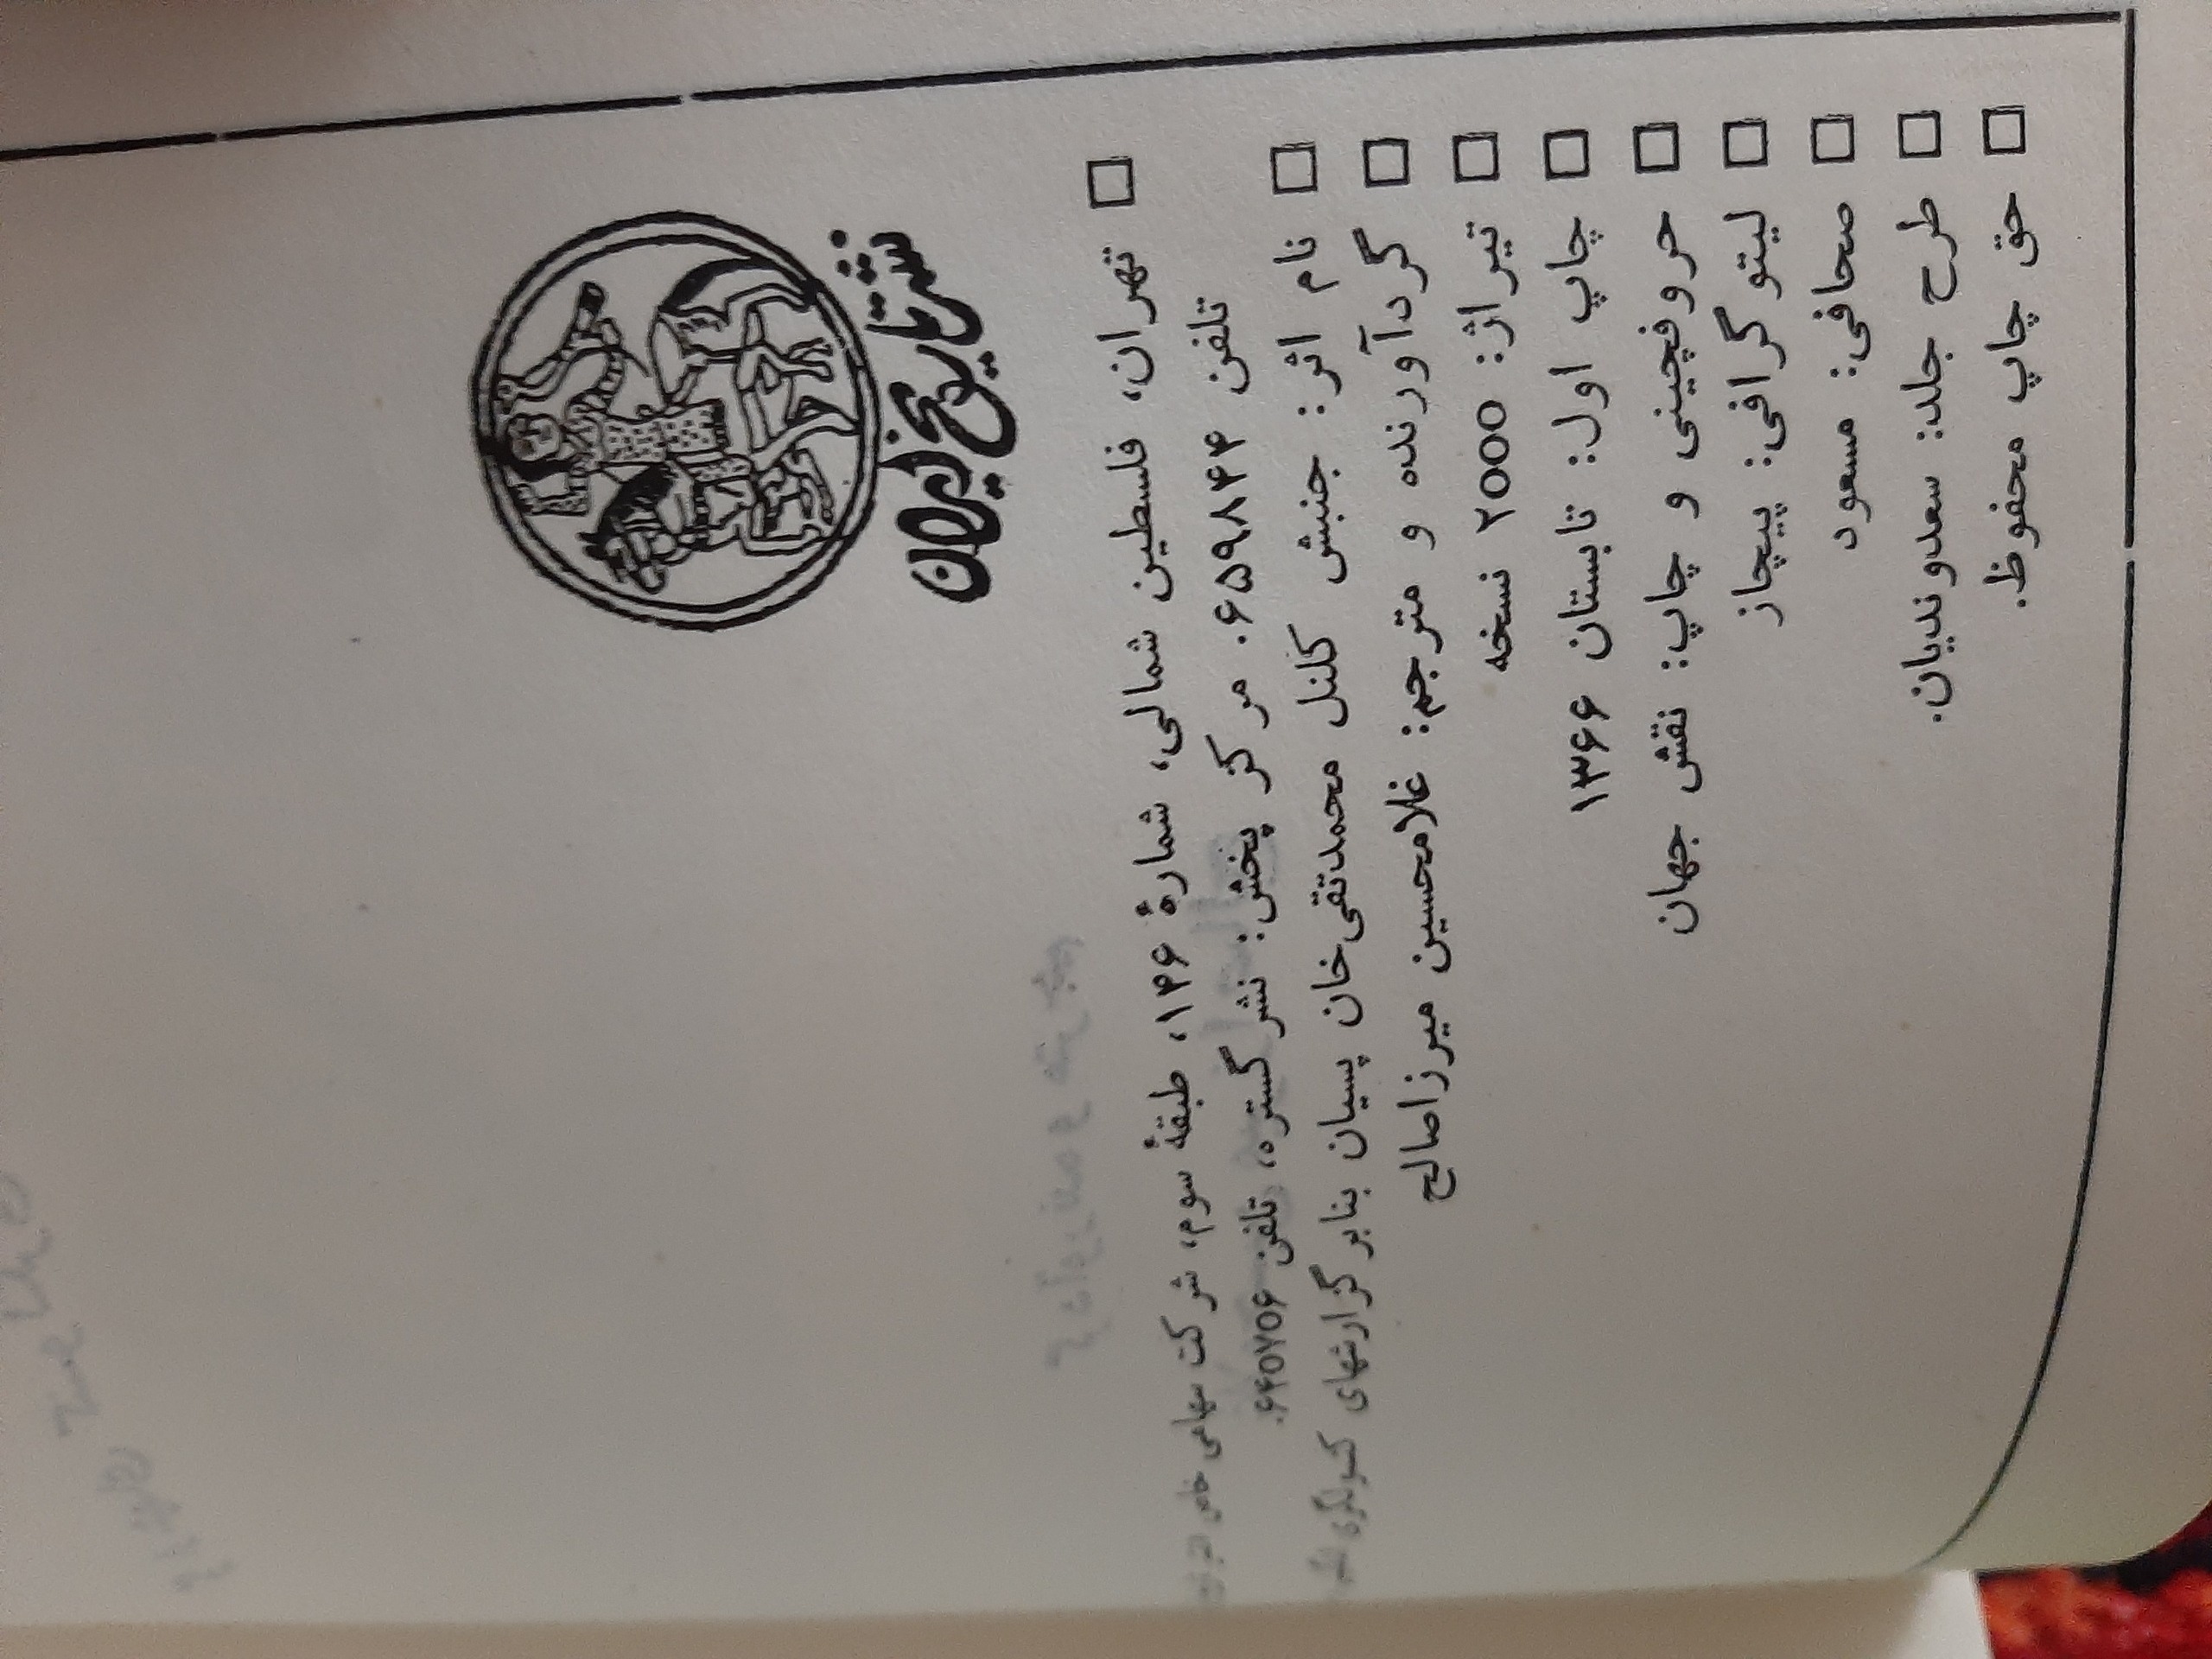 نشر تاریخ ایران
□ تهران، فلسطین شمالی، شمارهٔ ۱۴۶، طبقهٔ سوم، شرکت سهامی خاص
تلفن ۶۵۹۸۴۴. مرکز پخش: نشر گستره، تلفن ۶۴۰۷۰۶.
□ نام اثر: جنبش کلنل محمدتقی‌خان پسیان بنابر گزارشهای کنسولگری
□ گردآورنده و مترجم: غلامحسین میرزاصالح
□ تیراژ: ۲۰۰۰ نسخه
□ چاپ اول: تابستان ۱۳۶۶
□ حروفچینی و چاپ: نقش جهان
□ لیتوگرافی: پیچاز
□ صحافی: مسعود
□ طرح جلد: سعدوندیان.
□ حق چاپ محفوظ.